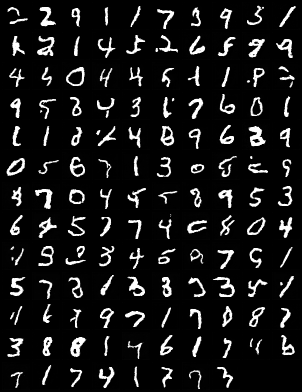 2 2 9 1 1 7 3 9 5 1
1 2 1 4 5 2 6 5 9 9
4 5 0 4 4 5 1 1 8 2
9 5 8 4 3 1 7 6 0 1
1 1 8 4 8 9 6 8 9
0 5 6 7 1 3 0 8 2 9
8 7 0 4 5 5 8 9 5 3
6 8 5 7 7 4 0 8 0 4
9 3 4 5 9 7 9 1
5 7 8 1 3 8 3 3 5 6
4 6 7 9 7 1 7 0 8 7
3 8 8 1 4 6 1 7 4 6
7 1 7 4 1 7 9 3